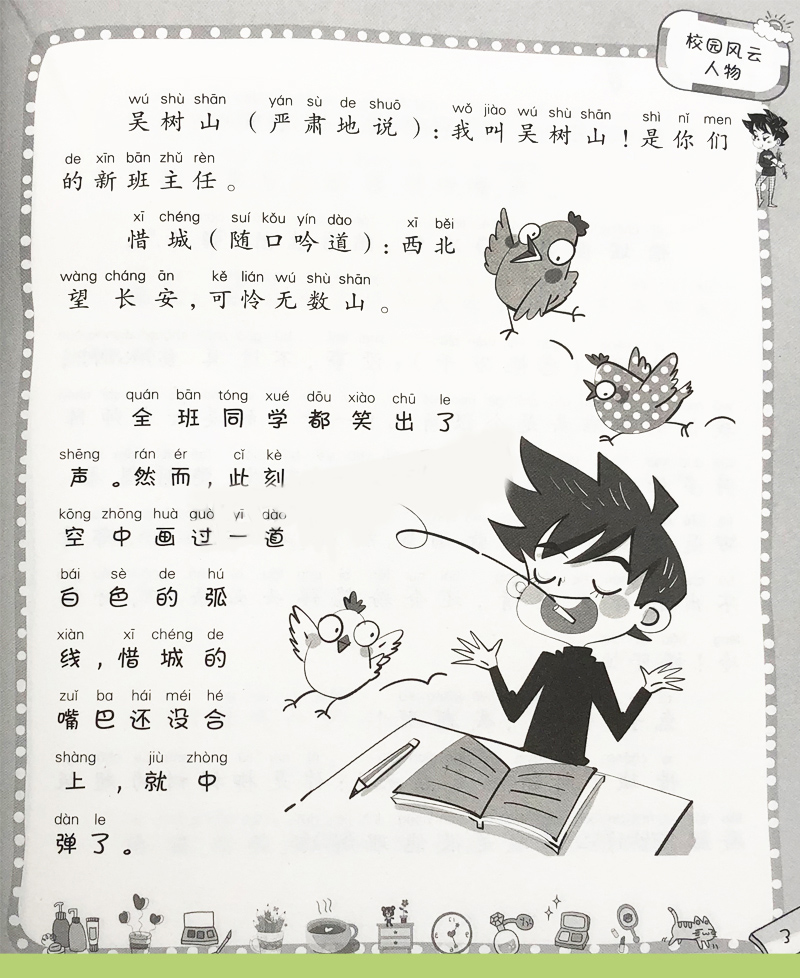 校园风云
人物
wú shù shān yán sù de shuō wǒ jiào wú shù shān shì nǐ men
吴树山（严肃地说）：我叫吴树山！是你们
de xīn bān zhǔ rèn
的新班主任。
xī chéng suí kǒu yín dào xī běi
惜城（随口吟道）：西北
wàng cháng ān kě lián wú shù shān
望长安，可怜无数山。
quán bān tóng xué dōu xiào chū le
全班同学都笑出了
shēng rán ér cǐ kè
声。然而，此刻
kōng zhōng huà guò yī dào
空中画过一道
bái sè de hú
白色的弧
xiàn xī chéng de
线，惜城的
zuǐ ba hái méi hé
嘴巴还没合
shàng jiù zhòng
上，就中
dàn le
弹了。
3